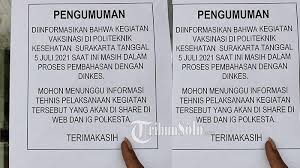 PENGUMUMAN
DIINFORMASIKAN BAHWA KEGIATAN
VAKSINASI DI POLITEKNIK
KESEHATAN SURAKARTA TANGGAL
5 JULI 2021 SAAT INI MASIH DALAM
PROSES PEMBAHASAN DENGAN
DINKES.
MOHON MENUNGGU INFORMASI
TEHNIS PELAKSANAAN KEGIATAN
TERSEBUT YANG AKAN DI SHARE DI
WEB DAN IG POLKESTA.
TERIMAKASIH
PENGUMUMAN
DIINFORMASIKAN BAHWA KEGIATAN
VAKSINASI DI POLITEKNIK
KESEHATAN SURAKARTA TANGGAL
5 JULI 2021 SAAT INI MASIH DALAM
PROSES PEMBAHASAN DENGAN
DINKES.
MOHON MENUNGGU INFORMASI
TEHNIS PELAKSANAAN KEGIATAN
TERSEBUT YANG AKAN DI SHARE DI
WEB DAN IG POLKESTA.
TERIMAKASIH
TribunSolo